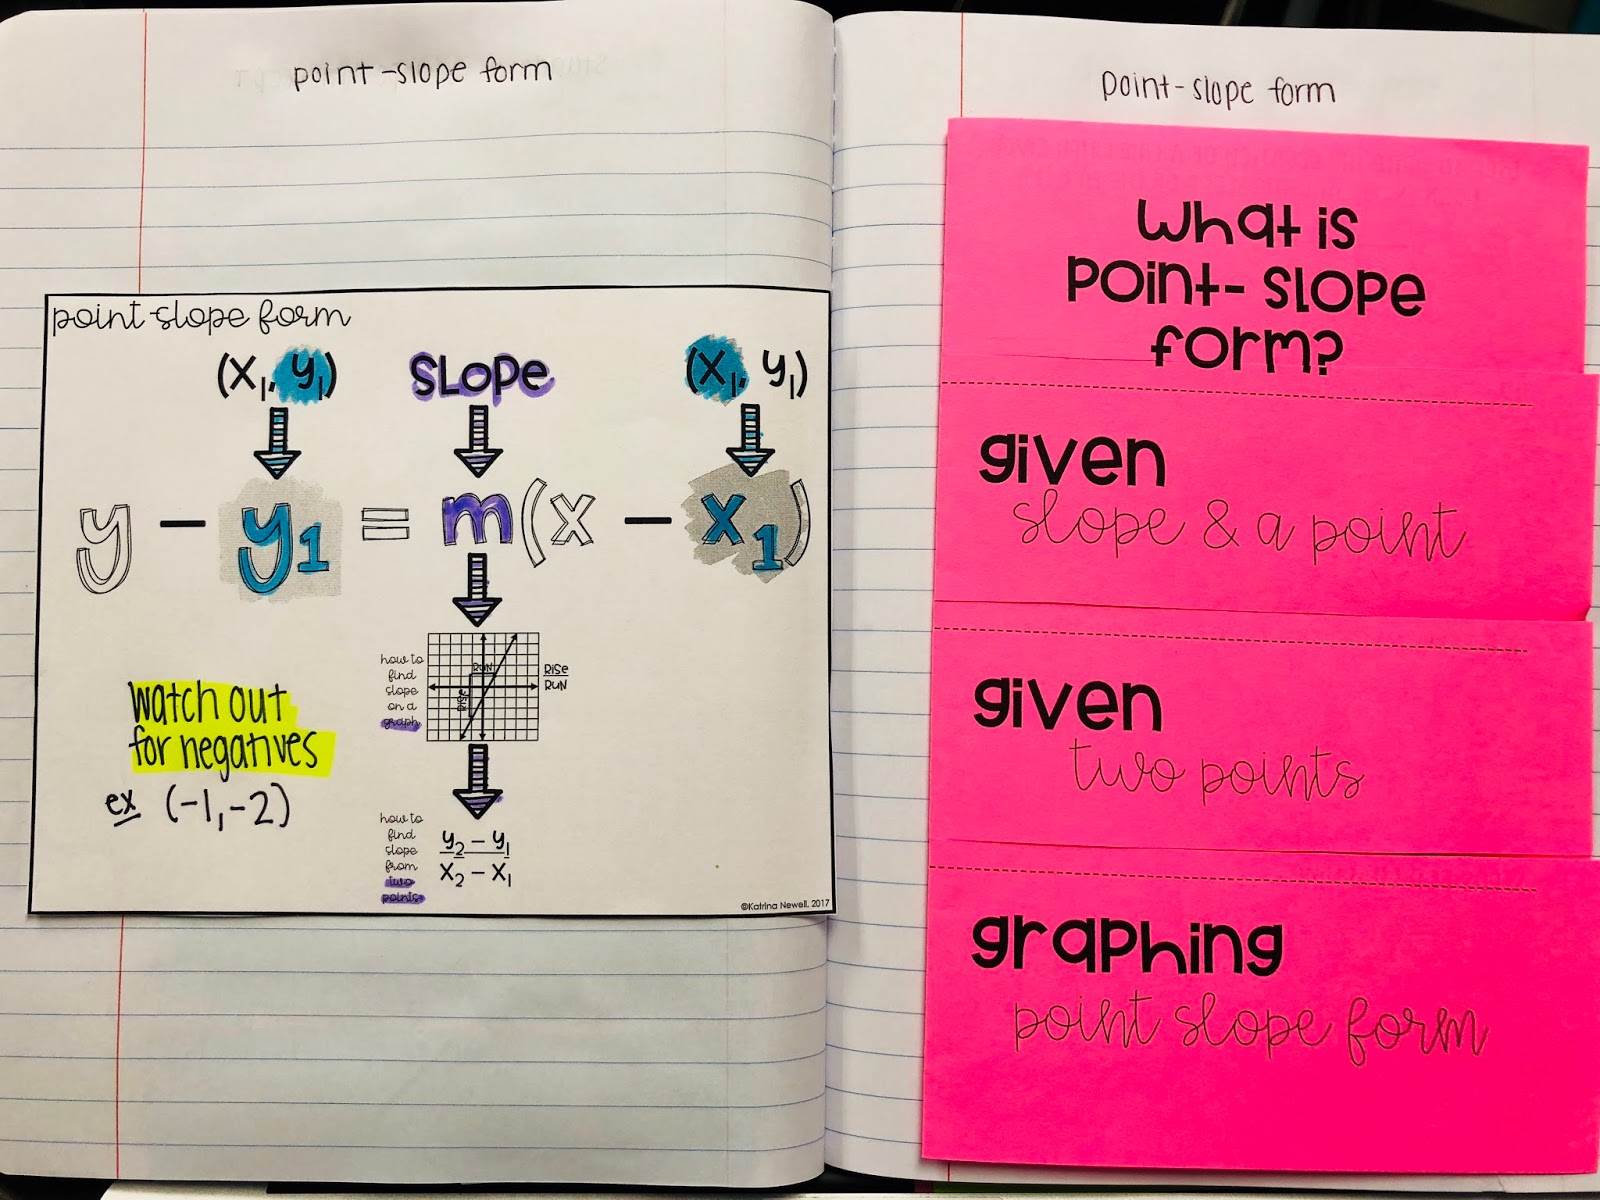 point-slope form
point slope form
(x₁, y₁) SLOPE (x₁, y₁)
y − y₁ = m(x − x₁)
how to
find
slope
on a
graph
RUN
Rise
Rise
RUN
watch out
for negatives
ex (-1,-2)
how to
find
slope
from
two
points
y₂ − y₁
x₂ − x₁
©Katrina Newell, 2017
point-slope form
What is
point- slope
form?
given
slope & a point
given
two points
graphing
point slope form